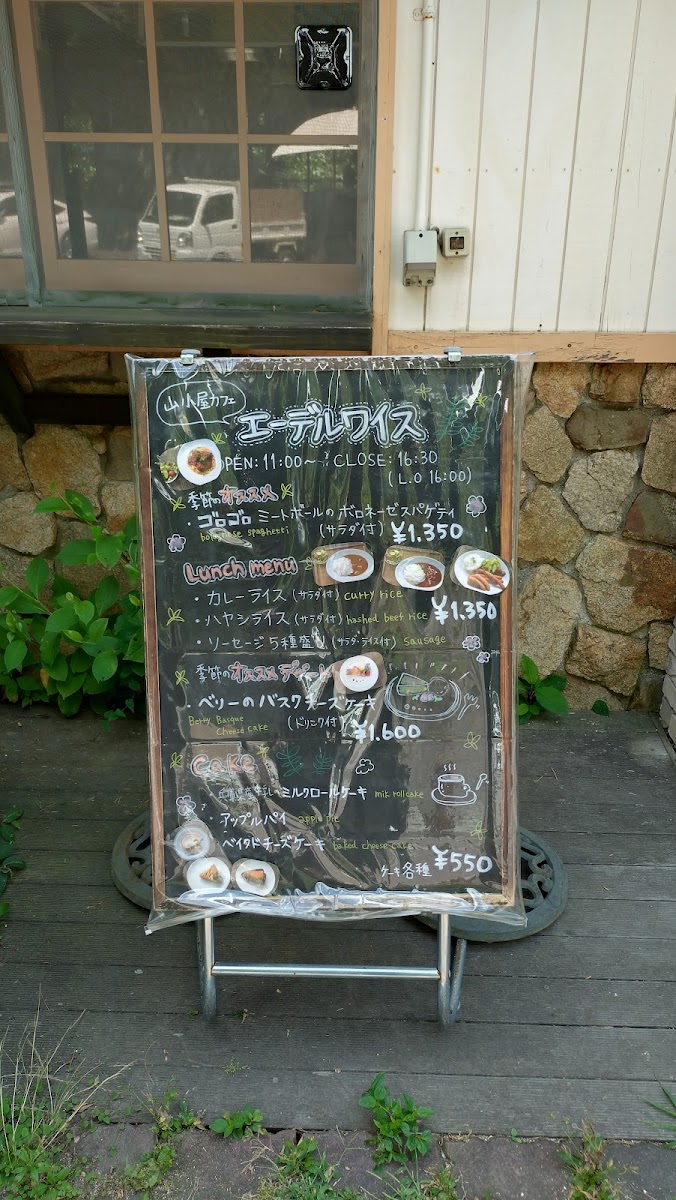 山小屋カフェ
エーデルワイス
OPEN: 11:00～ CLOSE: 16:30
(L.O 16:00)
季節のオススメ
・ゴロゴロ ミートボールの ボロネーゼスパゲティ
bolognese spaghetti (サラダ付) ¥1.350
Lunch menu
・カレーライス (サラダ付) curry rice
・ハヤシライス (サラダ付) hashed beef rice ¥1.350
・ソーセージ5種盛り (サラダ・ライス付) sausage
季節のオススメ デザート
・ベリーのバスクチーズケーキ
Berry Basque
cheese cake (ドリンク付) ¥1.600
Cake
ミルクロールケーキ milk rollcake
・アップルパイ apple pie
・ベイクドチーズケーキ baked cheese cake
ケーキ各種 ¥550